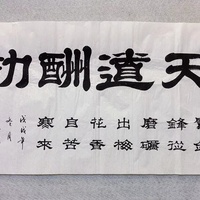 天道酬
鋒從
磨礪
出梅
花香
自苦
寒來
戊戌年